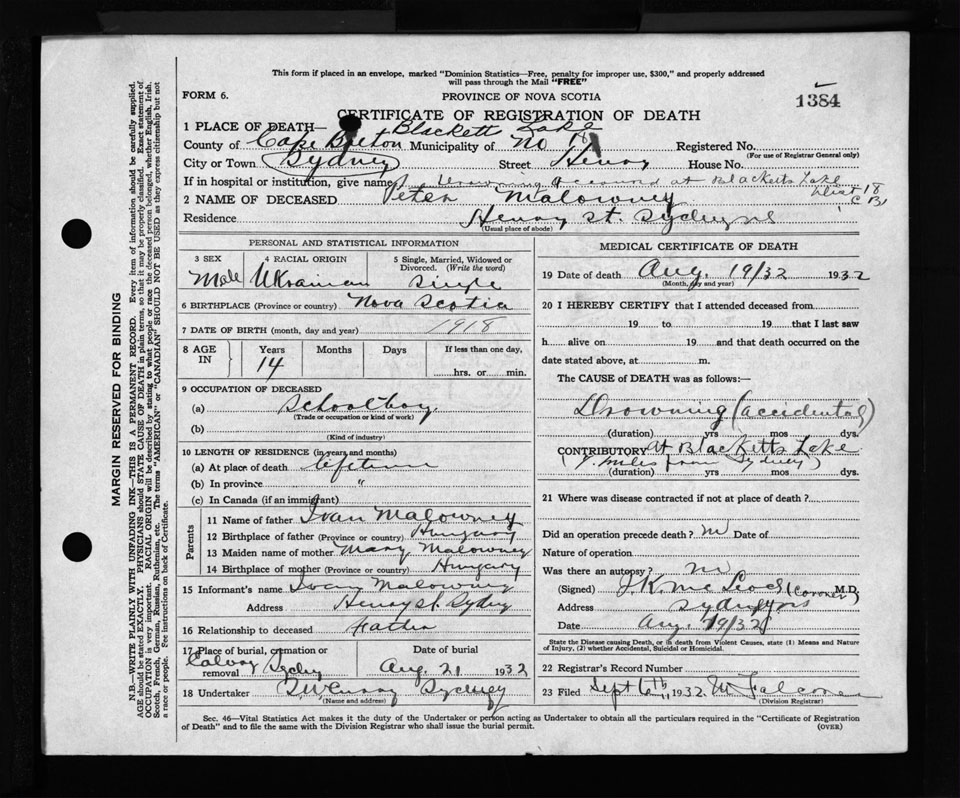 This form if placed in an envelope, marked "Dominion Statistics—Free, penalty for improper use, $300," and properly addressed
will pass through the Mail "FREE"
FORM 6.
PROVINCE OF NOVA SCOTIA
1384
CERTIFICATE OF REGISTRATION OF DEATH
1 PLACE OF DEATH— Blackett Lake
County of Cape Breton Municipality of No 18 Registered No.
(For use of Registrar General only)
City or Town Sydney Street Henry House No.
If in hospital or institution, give name at Blacketts Lake
Dist 18
C B
2 NAME OF DECEASED Peter Malowney
Residence Henry St. Sydney NS
(Usual place of abode)
PERSONAL AND STATISTICAL INFORMATION
3 SEX 4 RACIAL ORIGIN 5 Single, Married, Widowed or
Divorced. (Write the word)
Male Ukranian Single
6 BIRTHPLACE (Province or country) Nova Scotia
7 DATE OF BIRTH (month, day and year) 1918
8 AGE IN Years Months Days If less than one day,
14 hrs. or min.
9 OCCUPATION OF DECEASED
(a) Schoolboy
(Trade or occupation or kind of work)
(b)
(Kind of industry)
10 LENGTH OF RESIDENCE (in years and months)
(a) At place of death lifetime
(b) In province "
(c) In Canada (if an immigrant)
Parents
11 Name of father Ivan Malowney
12 Birthplace of father (Province or country) Hungary
13 Maiden name of mother Mary Malowney
14 Birthplace of mother (Province or country) Hungary
15 Informant's name Ivan Malowney
Address Henry St. Sydney
16 Relationship to deceased Father
17 Place of burial, cremation or removal Date of burial
Calvary Sydney Aug. 21 1932
18 Undertaker Sydney
(Name and address)
MEDICAL CERTIFICATE OF DEATH
19 Date of death Aug. 19/32 1932
(Month, day and year)
20 I HEREBY CERTIFY that I attended deceased from
19 to 19 that I last saw
h alive on 19 and that death occurred on the
date stated above, at m.
The CAUSE OF DEATH was as follows:—
Drowning (accidental)
(duration) yrs mos dys.
CONTRIBUTORY at Blacketts Lake
(9 miles from Sydney)
(duration) yrs. mos dys.
21 Where was disease contracted if not at place of death?
Did an operation precede death? no Date of
Nature of operation
Was there an autopsy? no
(Signed) J.K. McLeod (Coroner) M.D.
Address Sydney NS
Date Aug 19/32
State the Disease causing Death, or in death from Violent Causes, state (1) Means and Nature
of Injury, (2) whether Accidental, Suicidal or Homicidal.
22 Registrar's Record Number
23 Filed Sept 6th, 1932
(Division Registrar)
Sec. 46—Vital Statistics Act makes it the duty of the Undertaker or person acting as Undertaker to obtain all the particulars required in the "Certificate of Registration
of Death" and to file the same with the Division Registrar who shall issue the burial permit.
(OVER)
MARGIN RESERVED FOR BINDING
N.B.—WRITE PLAINLY WITH UNFADING INK—THIS IS A PERMANENT RECORD. Every item of information should be carefully supplied.
AGE should be stated EXACTLY. PHYSICIANS should STATE CAUSE OF DEATH in plain terms, so that it may be properly classified. Exact statement of
OCCUPATION is very important. RACIAL ORIGIN will be described by stating to what people or race the deceased person belonged, whether English, Irish,
Scotch, French, German, Russian, Ruthenian, etc. The terms "AMERICAN" or "CANADIAN" SHOULD NOT BE USED as they express citizenship but not
a race or people. Fee instructions on back of Certificate.